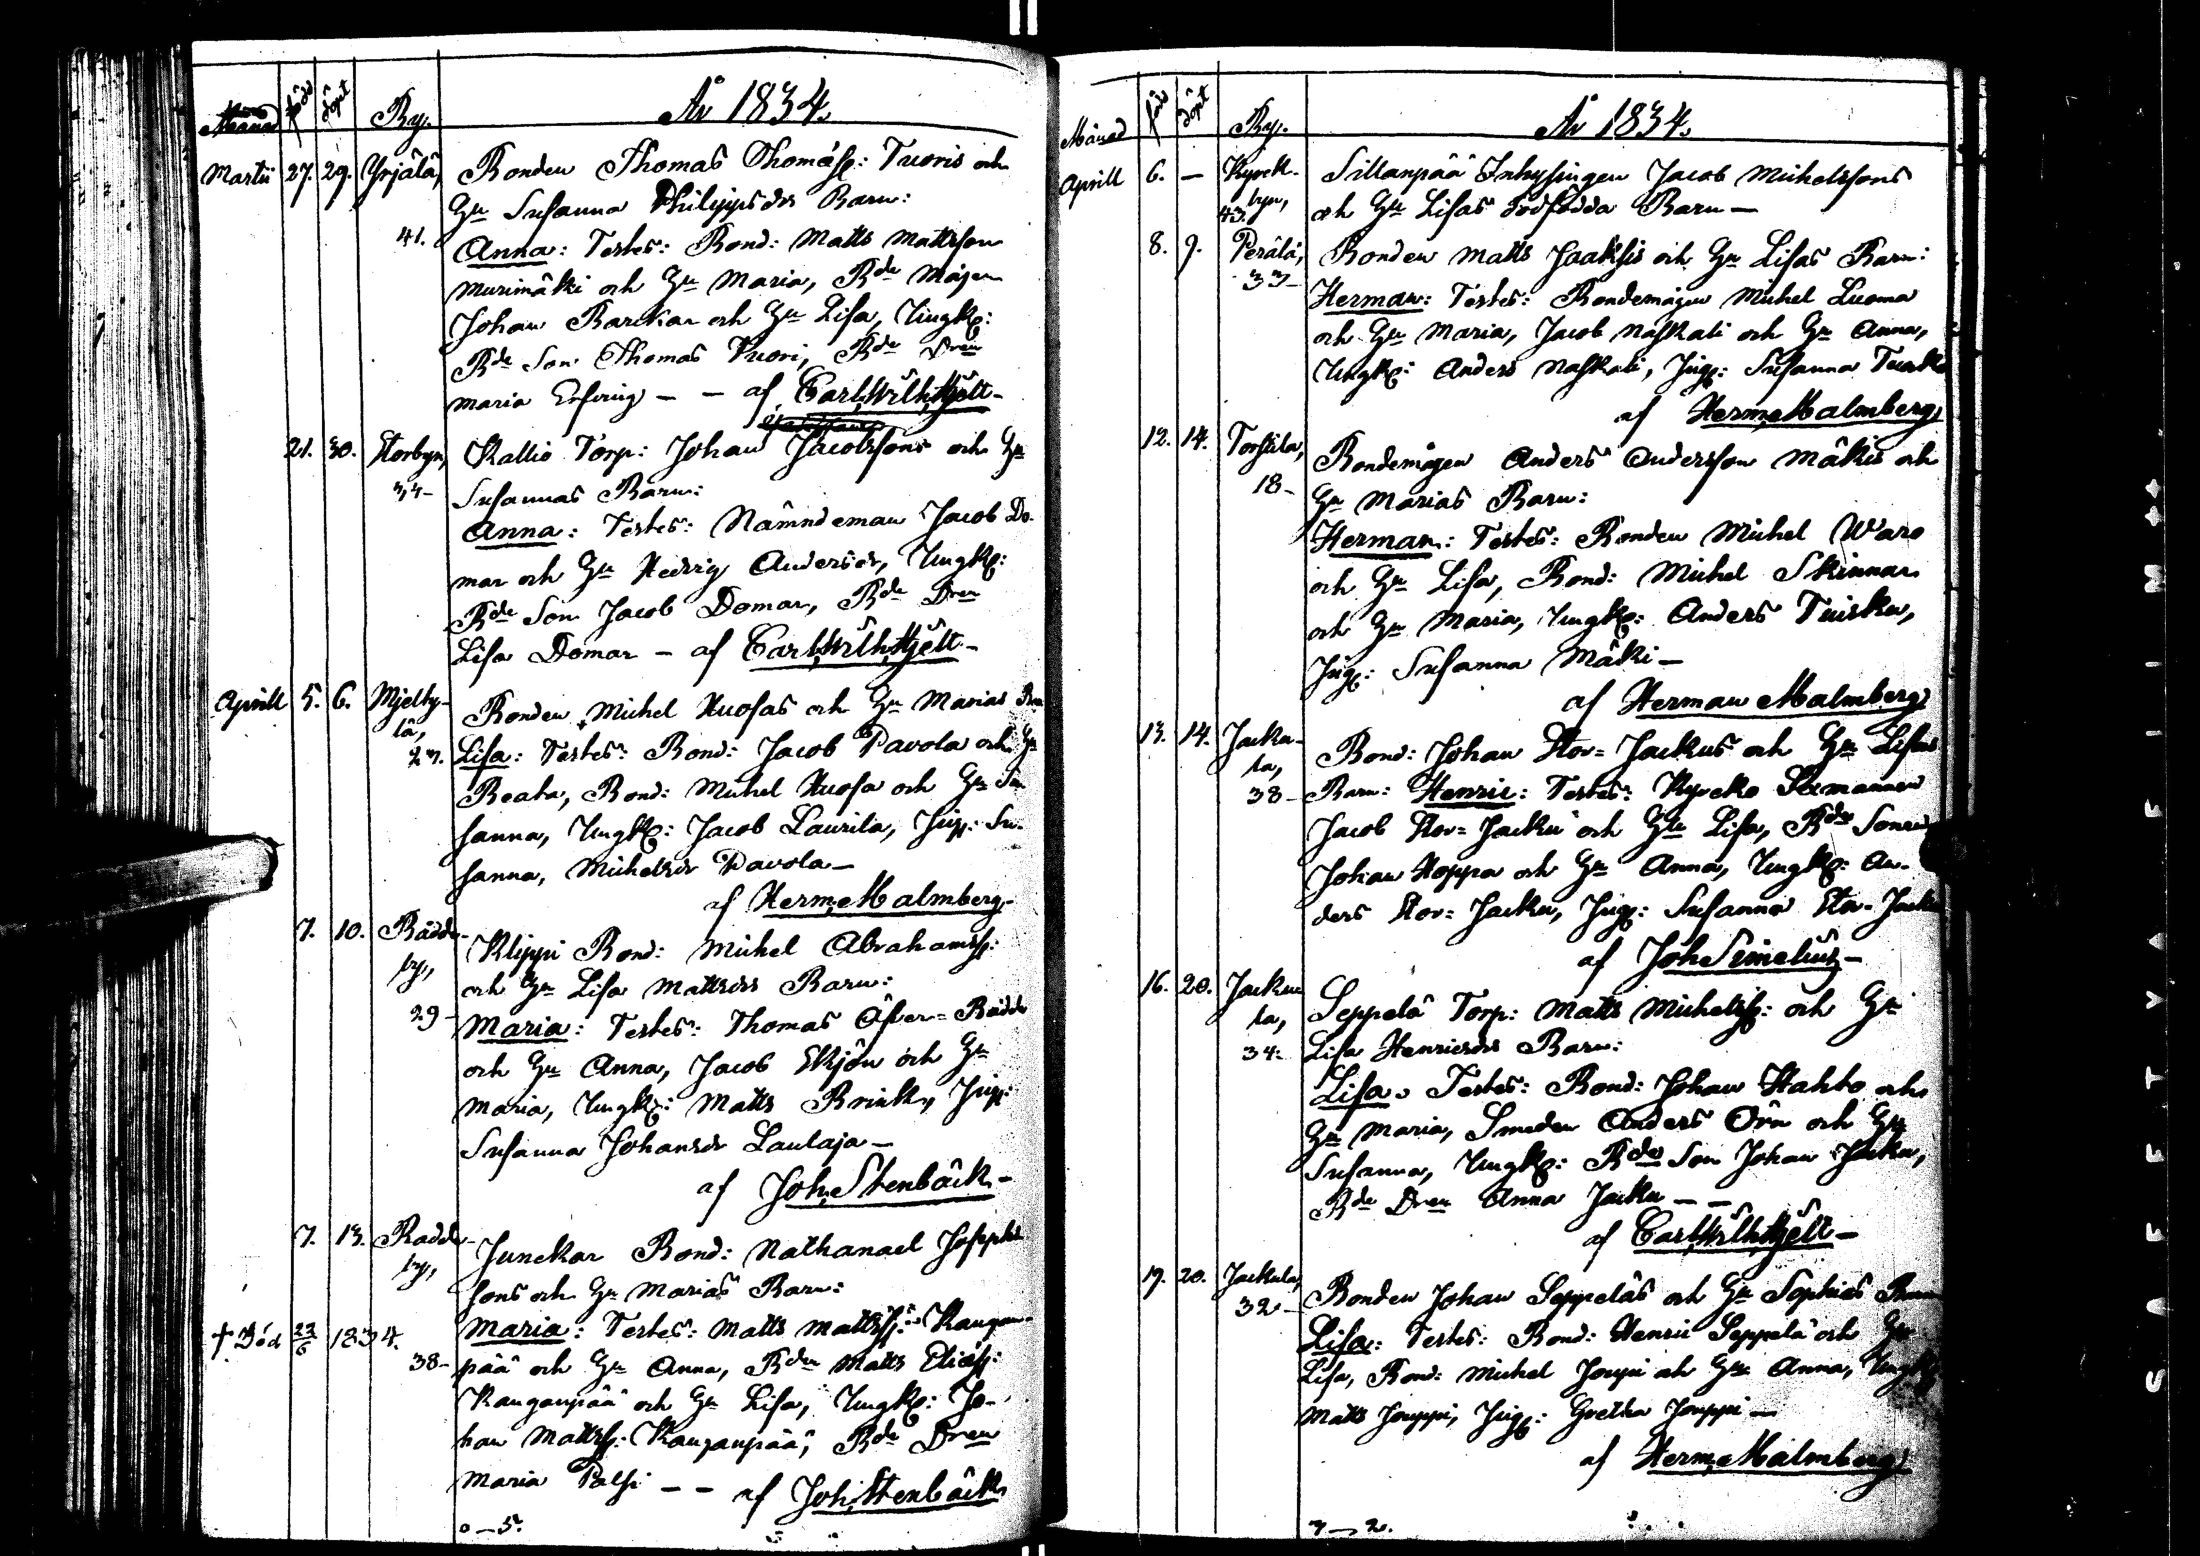 Månad född döpt By. År 1834.
Martii 27. 29. Yrjälä, Bonden Thomas Thomass: Tuoris och
Hu Susanna Philippsdrs Barn:
41. Anna: Testes: Bond: Matts Mattsson
Murimäki och Hu Maria, Bde Mågen
Johan Barckar och Hu Lisa, Ungk:
Bde Son Thomas Tuori, Bde Dren
Maria — — af Carl Wilh. Hjelt —
21. 30. Storbyn, Kallio Torp: Johan Jacobssons och Hu
Susannas Barn:
Anna: Testes: Nämndeman Jacob Do-
mar och Hu Hedvig Andersdr, Ungk:
Bde Son Jacob Domar, Bde Dren
Lisa Domar — af Carl Wilh. Hjelt —
Aprill 5. 6. Mjelby- Bonden Michel Huosas och Hu Marias Barn
lä,
27. Lisa: Testes: Bond: Jacob Pavola och Hu
Beata, Bond: Michel Huosa och Hu Su
sanna, Ungk: Jacob Laurila, Jug: Su-
sanna, Michelsdr Pavola —
af Herm. Malmberg —
7. 10. Rädde- Klippi Bond: Michel Abrahamss:
by, och Hu Lisa Mattsdrs Barn:
29 — Maria: Testes: Thomas Öfver=Rädde
och Hu Anna, Jacob Skjön och Hu
Maria, Ungk: Matts Brink, Jug:
Susanna Johansdr Laulaja —
af Joh. Stenbäck —
7. 13. Radde- Junckar Bond: Nathanael Josephs
by, sons och Hu Marias Barn:
† Död 22/6 1834. Maria: Testes: Matts Mattss: Kangan-
38 — pää och Hu Anna, Bden Matts Eliæs:
Kanganpää och Hu Lisa, Ungk: Jo-
han Mattss: Kanganpää, Bde Dren
Maria Palsi — — af Joh. Stenbäck
0 — 5.
Månad född döpt By. År 1834.
Aprill 6. — Kyrck- Sillanpää Inhysingen Jacob Michelssons
byn, 43. och Hu Lisas dödfödda Barn —
8. 9. Perälä, Bonden Matts Jaaksis och Hu Lisas Barn:
33 — Herman: Testes: Bondemågen Michel Luoma
och Hu Maria, Jacob Naskali och Hu Anna,
Ungk: Anders Naskali, Jug: Susanna
af Herm. Malmberg
12. 14. Torstila, Bondemågen Anders Andersson Mäkis och
18 — Hu Marias Barn:
Herman: Testes: Bonden Michel Waro
och Hu Lisa, Bond: Michel Skinnar
och Hu Maria, Ungk: Anders Tuisku,
Jug: Susanna Mäki —
af Herman Malmberg
13. 14. Jacku- Bond: Johan Stor=Jackus och Hu Lisas
la,
38 — Barn: Henric: Testes: Kyrcko Sexmannen
Jacob Stor=Jacku och Hu Lisa, Bde Sonen
Johan Hoppa och Hu Anna, Ungk: An-
ders Stor=Jacku, Jug: Susanna Stor=Jacku
af Joh. Simelius —
16. 20. Jacku- Seppelä Torp: Matts Michelss: och Hu
la,
34: Lisa Henricsdrs Barn:
Lisa. Testes: Bond: Johan Hahto och
Hu Maria, Smeden Anders Örn och Hu
Susanna, Ungk: Bde Son Johan Jacku,
Bde Dren Anna Jacku — —
af Carl Wilh. Hjelt —
19. 20. Jackula, Bonden Johan Seppeläs och Hu Sophias Barn
32 — Lisa: Testes: Bond: Henric Seppelä och Hu
Lisa, Bond: Michel Jouppi och Hu Anna, Ungk:
Matts Jouppi, Jug: Gretha Jouppi —
af Herm. Malmberg
7 — 2.
SAFETY FILM